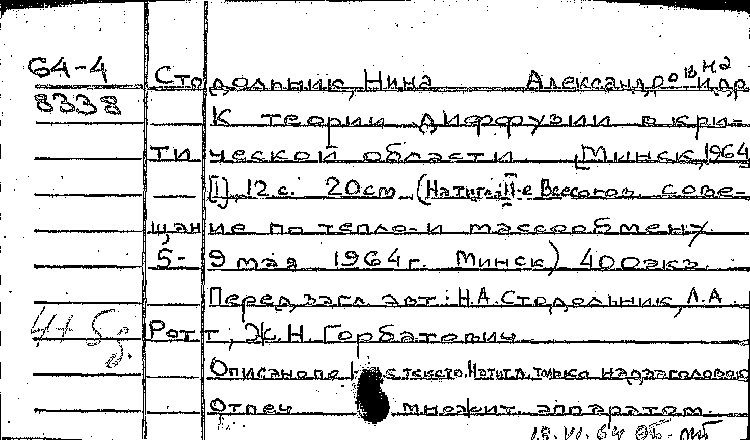 64-4 Стодольник, Нина Александровна и др
8338 К теории диффузии в кри-
тической области. [Минск, 1964
[I], 12 с. 20см (На тит.л.: II-е Всесоюз. сове-
щание по тепло-и массообмену
5- 9 мая 1964г. Минск) 400экз.
Перед загл. авт.: Н.А. Стодольник, Л.А.
Ротт, Ж.Н. Горбатович
Описано по текста. На тит.л. только надзаголовок
Отпеч множит. аппаратом.